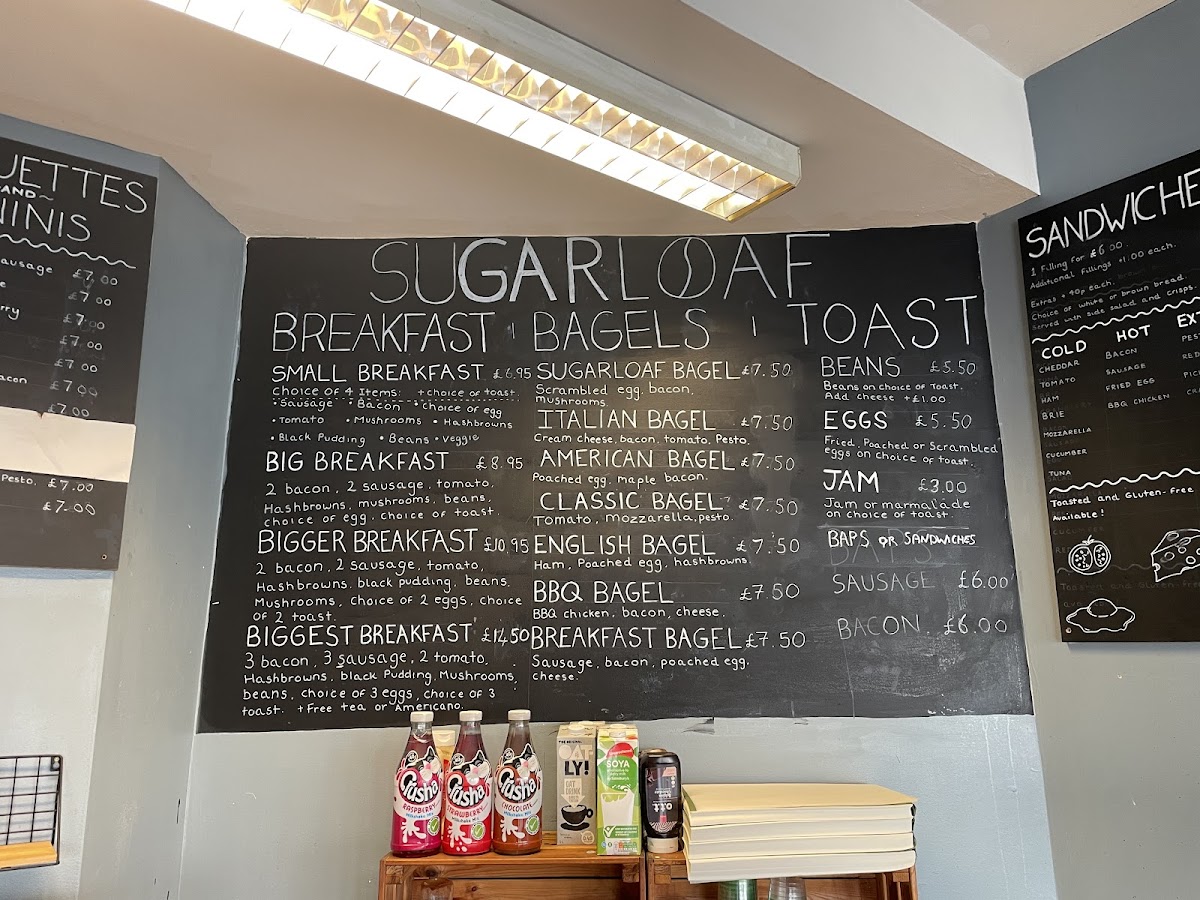 UETTES
AND~
NINIS
ausage £7.00
£7.00
£7.00
£7.00
£7.00
acon £7.00
£7.00
Pesto. £7.00
£7.00
SUGARLOAF
BREAKFAST
SMALL BREAKFAST £6.95
Choice of 4 Items: +choice of toast.
• Sausage • Bacon • choice of egg
• Tomato • Mushrooms • Hashbrowns
• Black Pudding • Beans • veggie
BIG BREAKFAST £8.95
2 bacon, 2 sausage, tomato,
Hashbrowns, mushrooms, beans,
choice of egg, choice of toast.
BIGGER BREAKFAST £10.95
2 bacon, 2 sausage, tomato,
Hashbrowns, black pudding, beans,
Mushrooms, choice of 2 eggs, choice
of 2 toast.
BIGGEST BREAKFAST £14.50
3 bacon, 3 sausage, 2 tomato,
Hashbrowns, black Pudding, Mushrooms,
beans, choice of 3 eggs, choice of 3
toast. +Free tea or Americano.
BAGELS
SUGARLOAF BAGEL £7.50
Scrambled egg, bacon,
mushrooms.
ITALIAN BAGEL £7.50
Cream cheese, bacon, tomato, Pesto.
AMERICAN BAGEL £7.50
Poached egg, maple bacon.
CLASSIC BAGEL £7.50
Tomato, mozzarella, pesto.
ENGLISH BAGEL £7.50
Ham, Poached egg, hashbrowns.
BBQ BAGEL £7.50
BBQ chicken, bacon, cheese.
BREAKFAST BAGEL £7.50
Sausage, bacon, poached egg,
cheese.
TOAST
BEANS £5.50
Beans on choice of Toast.
Add cheese +£1.00
EGGS £5.50
Fried, Poached or Scrambled
Eggs on choice of toast.
JAM £3.00
Jam or marmalade
on choice of toast
BAPS OR SANDWICHES
SAUSAGE £6.00
BACON £6.00
SANDWICHE
1 Filling for £6.00.
Additional fillings +1.00 each.
Extras + 40p each.
Choice of white or brown bread.
Served with side salad and crisps.
COLD
CHEDDAR
TOMATO
HAM
BRIE
MOZZARELLA
CUCUMBER
TUNA
HOT
BACON
SAUSAGE
FRIED EGG
BBQ CHICKEN
EXT
PES
RED
PIC
Toasted and Gluten-free
Available!
Crusha
RASPBERRY
milkshake mix
Crusha
STRAWBERRY
milkshake mix
Crusha
CHOCOLATE
milkshake mix
THE ORIGINAL
OAT
LY!
OAT
DRINK
SOYA